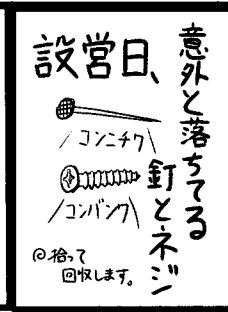 設営日、
意外と落ちてる
釘とネジ
/コンニチワ\
/コンバンワ\
@拾って
回収します。